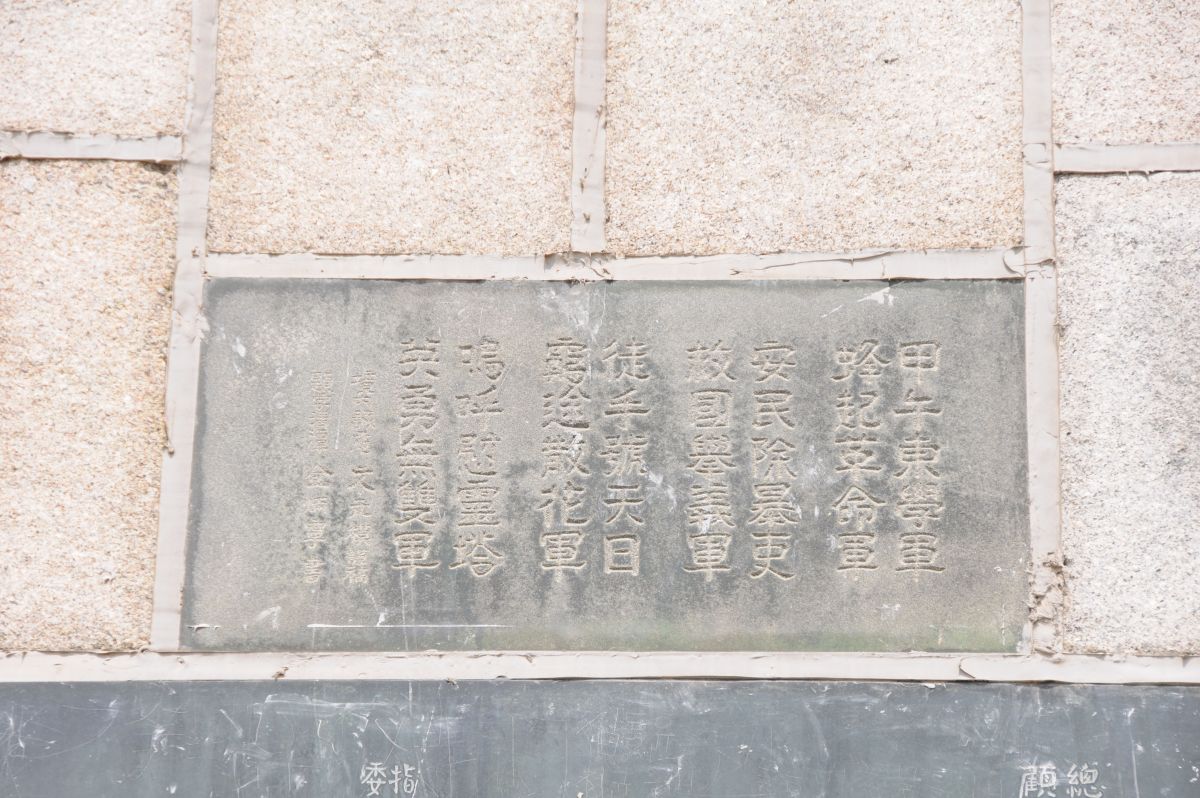 甲午東學軍
蜂起革命軍
安民除暴吏
救國擧義軍
徒手號天日
窮途散花軍
嗚呼慰靈塔
英勇無雙軍
總
顧
指
委